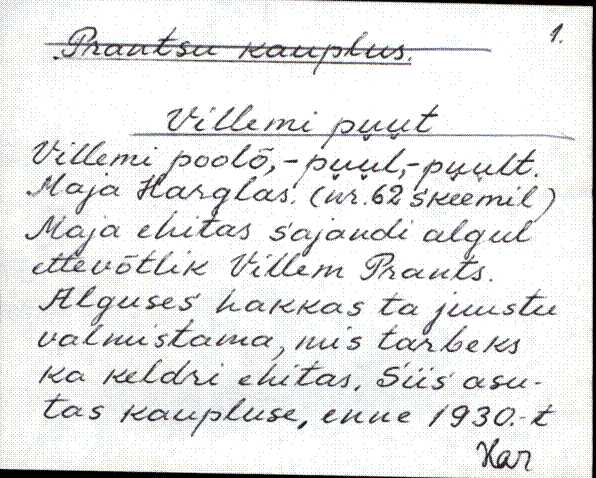 1.
Prantsu kauplus.
Villemi pu̬u̬t
Villemi poolõ, - pu̬u̬l, - pu̬u̬lt.
Maja Harglas. (nr. 62 skeemil)
Maja ehitas sajandi algul
ettevõtlik Villem Prants.
Alguses hakkas ta juustu
valmistama, mis tarbeks
ka keldri ehitas. Siis asu-
tas kaupluse, enne 1930.-t
Har